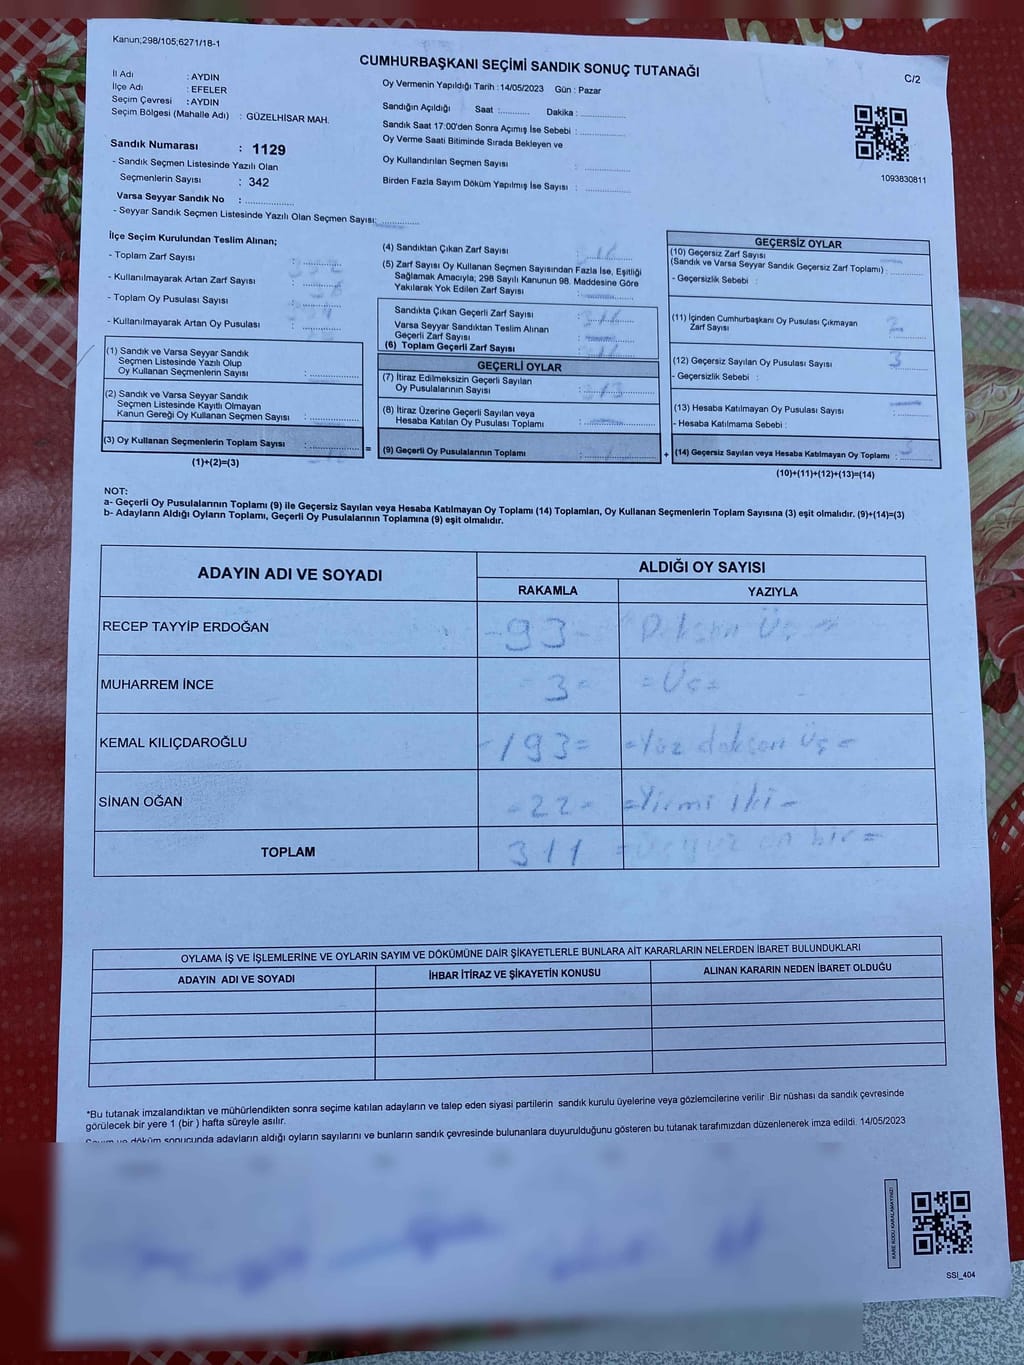 Kanun;298/105;6271/18-1
CUMHURBAŞKANI SEÇİMİ SANDIK SONUÇ TUTANAĞI
C/2
İl Adı : AYDIN
İlçe Adı : EFELER
Seçim Çevresi : AYDIN
Seçim Bölgesi (Mahalle Adı) : GÜZELHİSAR MAH.
Oy Vermenin Yapıldığı Tarih : 14/05/2023 Gün : Pazar
Sandığın Açıldığı Saat :........... Dakika :..............
Sandık Saat 17:00'den Sonra Açımış İse Sebebi :..............
Oy Verme Saati Bitiminde Sırada Bekleyen ve
Oy Kullandırılan Seçmen Sayısı :..............
Birden Fazla Sayım Döküm Yapılmış İse Sayısı :..............
1093830811
Sandık Numarası : 1129
- Sandık Seçmen Listesinde Yazılı Olan
Seçmenlerin Sayısı : 342
Varsa Seyyar Sandık No :..............
- Seyyar Sandık Seçmen Listesinde Yazılı Olan Seçmen Sayısı:............
İlçe Seçim Kurulundan Teslim Alınan;
- Toplam Zarf Sayısı :
- Kullanılmayarak Artan Zarf Sayısı :
- Toplam Oy Pusulası Sayısı :
- Kullanılmayarak Artan Oy Pusulası :
(1) Sandık ve Varsa Seyyar Sandık
Seçmen Listesinde Yazılı Olup
Oy Kullanan Seçmenlerin Sayısı :..............
(2) Sandık ve Varsa Seyyar Sandık
Seçmen Listesinde Kayıtlı Olmayan
Kanun Gereği Oy Kullanan Seçmen Sayısı :..............
(3) Oy Kullanan Seçmenlerin Toplam Sayısı :
(1)+(2)=(3)
=
(4) Sandıktan Çıkan Zarf Sayısı :
(5) Zarf Sayısı Oy Kullanan Seçmen Sayısından Fazla İse, Eşitliği
Sağlamak Amacıyla; 298 Sayılı Kanunun 98. Maddesine Göre
Yakılarak Yok Edilen Zarf Sayısı :
Sandıkta Çıkan Geçerli Zarf Sayısı :
Varsa Seyyar Sandıktan Teslim Alınan
Geçerli Zarf Sayısı :
(6) Toplam Geçerli Zarf Sayısı :
GEÇERLİ OYLAR
(7) İtiraz Edilmeksizin Geçerli Sayılan
Oy Pusulalarının Sayısı : 313
(8) İtiraz Üzerine Geçerli Sayılan veya
Hesaba Katılan Oy Pusulası Toplamı :
(9) Geçerli Oy Pusulalarının Toplamı :
+
GEÇERSİZ OYLAR
(10) Geçersiz Zarf Sayısı
(Sandık ve Varsa Seyyar Sandık Geçersiz Zarf Toplamı) :
- Geçersizlik Sebebi :
(11) İçinden Cumhurbaşkanı Oy Pusulası Çıkmayan
Zarf Sayısı : 2
(12) Geçersiz Sayılan Oy Pusulası Sayısı : 3
- Geçersizlik Sebebi :
(13) Hesaba Katılmayan Oy Pusulası Sayısı :
- Hesaba Katılmama Sebebi :
(14) Geçersiz Sayılan veya Hesaba Katılmayan Oy Toplamı :
(10)+(11)+(12)+(13)=(14)
NOT:
a- Geçerli Oy Pusulalarının Toplamı (9) ile Geçersiz Sayılan veya Hesaba Katılmayan Oy Toplamı (14) Toplamları, Oy Kullanan Seçmenlerin Toplam Sayısına (3) eşit olmalıdır. (9)+(14)=(3)
b- Adayların Aldığı Oyların Toplamı, Geçerli Oy Pusulalarının Toplamına (9) eşit olmalıdır.
ADAYIN ADI VE SOYADI
ALDIĞI OY SAYISI
RAKAMLA YAZIYLA
RECEP TAYYİP ERDOĞAN -93- Doksan Üç =
MUHARREM İNCE 3= =Üç=
KEMAL KILIÇDAROĞLU -193= =Yüz doksan üç=
SİNAN OĞAN -22- =Yirmi iki-
TOPLAM 311 =Üçyüz on bir=
OYLAMA İŞ VE İŞLEMLERİNE VE OYLARIN SAYIM VE DÖKÜMÜNE DAİR ŞİKAYETLERLE BUNLARA AİT KARARLARIN NELERDEN İBARET BULUNDUKLARI
ADAYIN ADI VE SOYADI İHBAR İTİRAZ VE ŞİKAYETİN KONUSU ALINAN KARARIN NEDEN İBARET OLDUĞU
*Bu tutanak imzalandıktan ve mühürlendikten sonra seçime katılan adayların ve talep eden siyasi partilerin sandık kurulu üyelerine veya gözlemcilerine verilir .Bir nüshası da sandık çevresinde
görülecek bir yere 1 (bir ) hafta süreyle asılır.
Sayım ve döküm sonucunda adayların aldığı oyların sayılarını ve bunların sandık çevresinde bulunanlara duyurulduğunu gösteren bu tutanak tarafımızdan düzenlenerek imza edildi. 14/05/2023
KARE KODU KARALAMAYINIZ!
SSİ_404